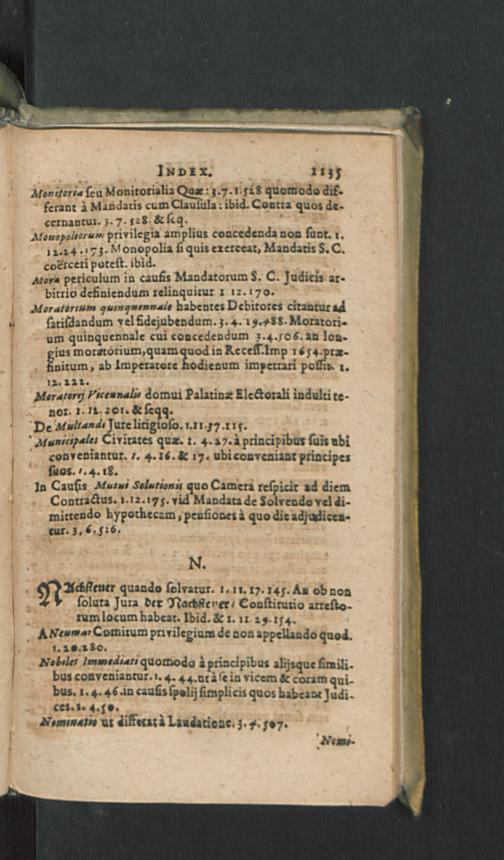 INDEX. 1135
Monitoria seu Monitorialia Quæ: 3.7.1.528 quomodo dif-
ferant à Mandatis cum Clausula: ibid. Contra quos de-
cernantur. 3. 7. 528. & seq.
Monopoliorum privilegia amplius concedenda non sunt. 1.
12.24.173. Monopolia si quis exerceat, Mandatis S. C.
coërceri potest. ibid.
Mora periculum in causis Mandatorum S. C. Judicis ar-
bitrio definiendum relinquitur 1 12.170.
Moratorium quinquennale habentes Debitores citantur ad
satisdandum vel fidejubendum. 3. 4. 19.488. Moratori-
um quinquennale cui concedendum 3.4.506. an lon-
gius moratorium, quam quod in Recess. Imp 1654. præ-
finitum, ab Imperatore hodienum impetrari possit. 1.
12.222.
Moratorij Vicennalis domui Palatinæ Electorali indulti te-
nor. 1. 12. 201. & seqq.
De Multandi Jure litigioso. 1.11.57.115.
Municipales Civitates quæ. 1. 4. 27. à principibus suis ubi
conveniantur. 1. 4. 16. & 17. ubi conveniant principes
suos. 1. 4. 18.
In Causis Mutui Solutionis quo Camera respicit ad diem
Contractus. 1.12.175. vid Mandata de Solvendo vel di-
mittendo hypothecam, pensiones à quo die adjudicen-
tur. 3. 6. 526.
N.
NAchsteuer quando solvatur. 1. 11. 17. 145. An ob non
soluta Jura der Nachsteuer/ Constitutio arresto-
rum locum habeat. Ibid. & 1. 11 29. 154.
A Neumar Comitum privilegium de non appellando quod.
1.20.280.
Nobiles Immediati quomodo à principibus alijsque simili-
bus conveniantur. 1. 4. 44. ut à se in vicem & coram qui-
bus. 1. 4. 46. in causis spolij simplicis quos habeant Judi-
ces. 1. 4. 50.
Nominatio ut differat à Laudatione. 3. 4. 507.
Nomi-